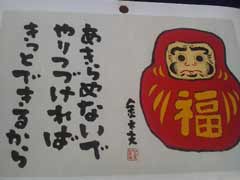 あきらめないで
やりつづければ
きっとできるから
福